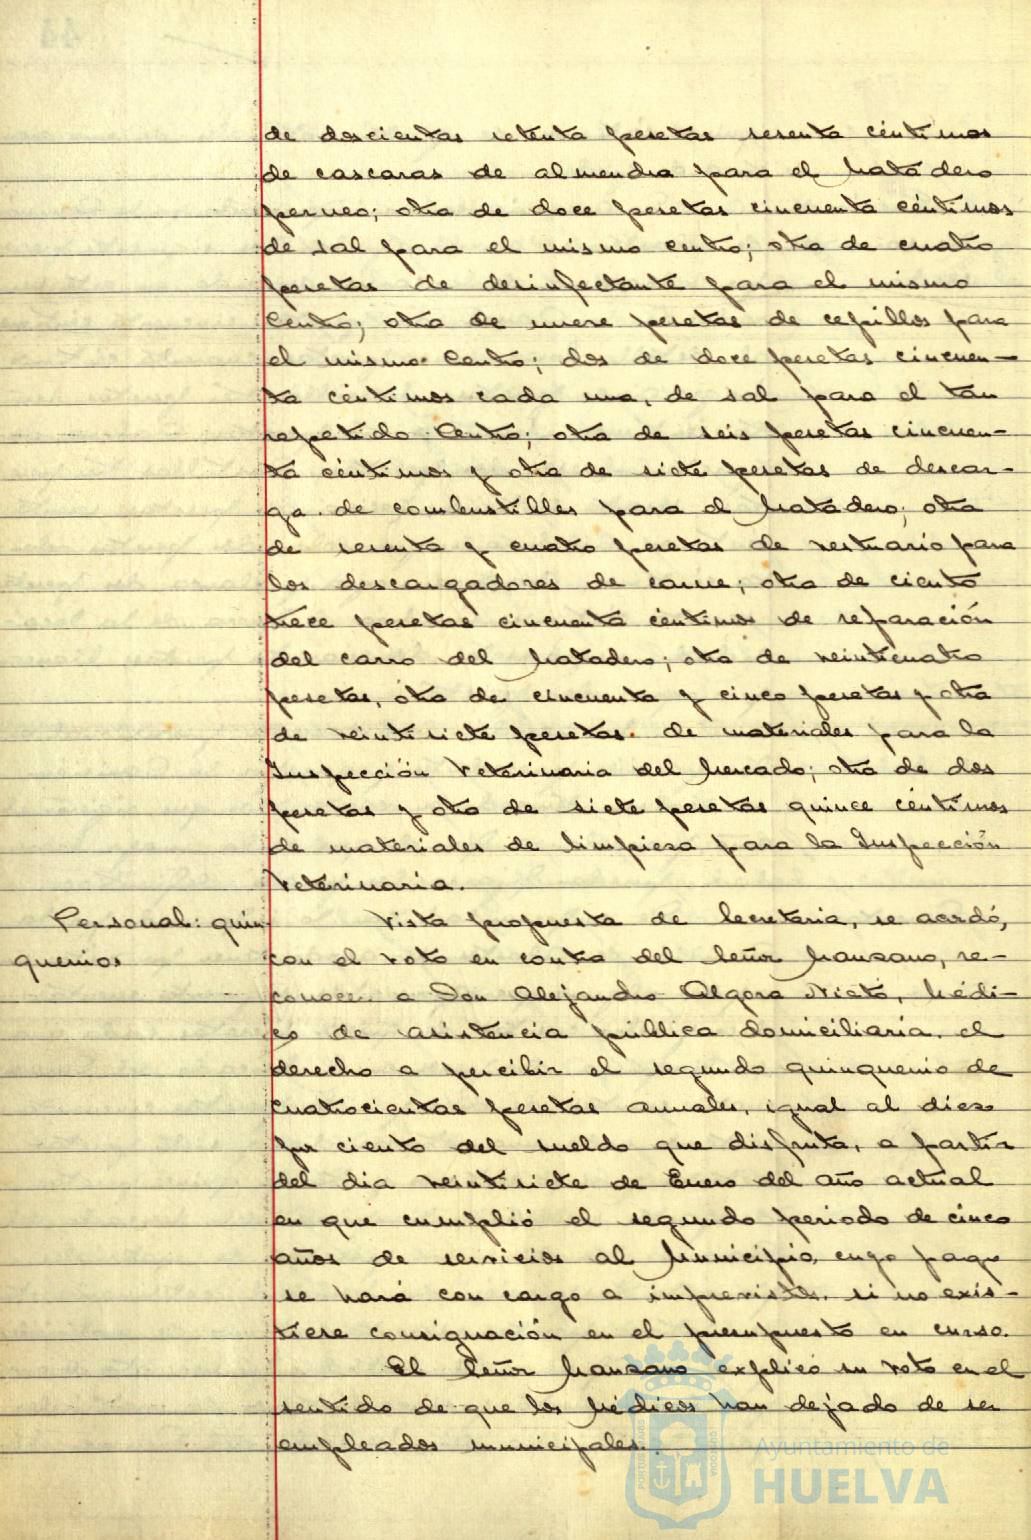 de doscientas setenta pesetas sesenta céntimos
de cascaras de almendra para el Matadero
perneo; otra de doce pesetas cincuenta céntimos
de sal para el mismo centro; otra de cuatro
pesetas de desinfectante para el mismo
Centro; otra de nueve pesetas de cepillos para
el mismo Centro; dos de doce pesetas cincuen-
ta céntimos cada una, de sal para el tan
repetido Centro; otra de seis pesetas cincuen-
ta céntimos y otra de siete pesetas de descar-
ga de combustibles para el Matadero; otra
de sesenta y cuatro pesetas de vestuario para
los descargadores de carne; otra de ciento
trece pesetas cincuenta céntimos de reparación
del carro del Matadero; otra de veinticuatro
pesetas, otra de cincuenta y cinco pesetas y otra
de veintisiete pesetas de materiales para la
Inspección Veterinaria del Mercado; otra de dos
pesetas y otra de siete pesetas quince céntimos
de materiales de limpieza para la Inspección
Veterinaria.
Personal: quin
quenios
Vista propuesta de Secretaria, se acordó,
con el voto en contra del Señor Manzano, re-
conocer a Don Alejandro Algora Nieto, Médi-
co de asistencia pública domiciliaria, el
derecho a percibir el segundo quinquenio de
cuatrocientas pesetas anuales, igual al diez
por ciento del sueldo que disfruta, a partir
del dia veintisiete de Enero del año actual
en que cumplió el segundo periodo de cinco
años de servicios al Municipio, cuyo pago
se hará con cargo a imprevistos, si no exis-
tiere consignación en el presupuesto en curso.
El Señor Manzano explicó su voto en el
sentido de que los Médicos han dejado de ser
empleados municipales.
Ayuntamiento de
HUELVA